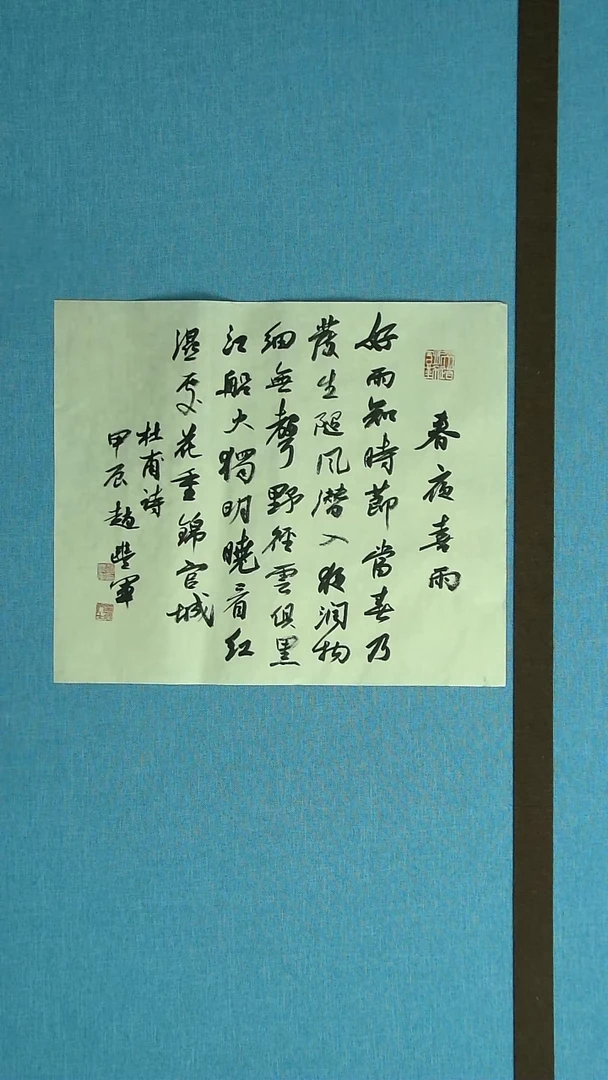 春夜喜雨
好雨知時節當春乃
發生隨風潛入夜潤物
細無聲野徑雲俱黑
江船火獨明曉看紅
濕處花重錦官城
杜甫詩
甲辰趙豐軍